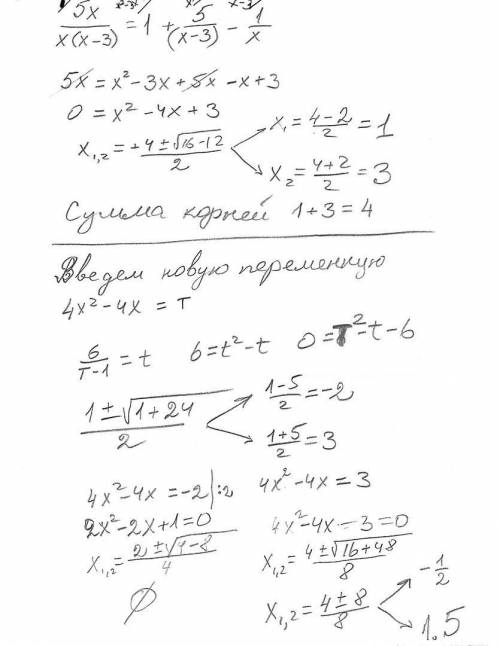 x²-3x x-3
5x/x(x-3) = 1 + 5/(x-3) - 1/x
5x = x² - 3x + 5x - x + 3
0 = x² - 4x + 3
x₁,₂ = +4 ± √16-12 / 2
x₁ = 4-2/2 = 1
x₂ = 4+2/2 = 3
Сумма корней 1+3=4
Введем новую переменную
4x² - 4x = т
6/т-1 = t 6 = t² - t 0 = т² - t - 6
1 ± √1+24 / 2
1-5/2 = -2
1+5/2 = 3
4x² - 4x = -2 | :2 4x² - 4x = 3
2x² - 2x + 1 = 0 4x² - 4x - 3 = 0
x₁,₂ = 2 ± √4-8 / 4 x₁,₂ = 4 ± √16+48 / 8
∅ x₁,₂ = 4 ± 8 / 8
-1/2
1.5